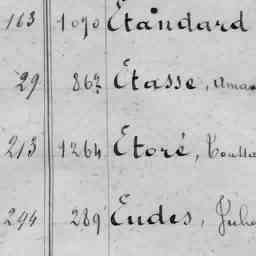 163 1090 Étandard
29 862 Étasse,
213 1264 Étoré,
294 289 Eudes, Jules